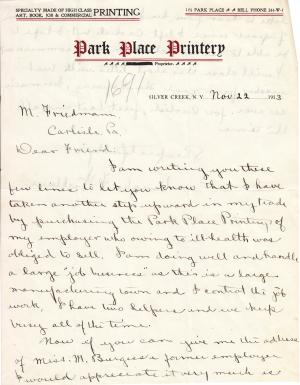 SPECIALTY MADE OF HIGH CLASS
ART, BOOK, JOB & COMMERCIAL PRINTING
151 PARK PLACE BELL PHONE 244-W-1
Park Place Printery
Proprietor.
1691
SILVER CREEK, N.Y. Nov 22 1913
M. Friedman
Carlisle, Pa.
Dear Friend:
I am writing you these
few lines to let you know that I have
taken another step upward in my trade
by purchasing the Park Place Printery of
my employer who owing to ill health was
obliged to sell. I am doing well and handle
a large "job business" as this is a large
manufacturing town and I control the job
work. I have two helpers and we keep
busy all of the time.
Now if you can give me the address
of Miss. M. Burgess a former employer
I would appreciate it very much is